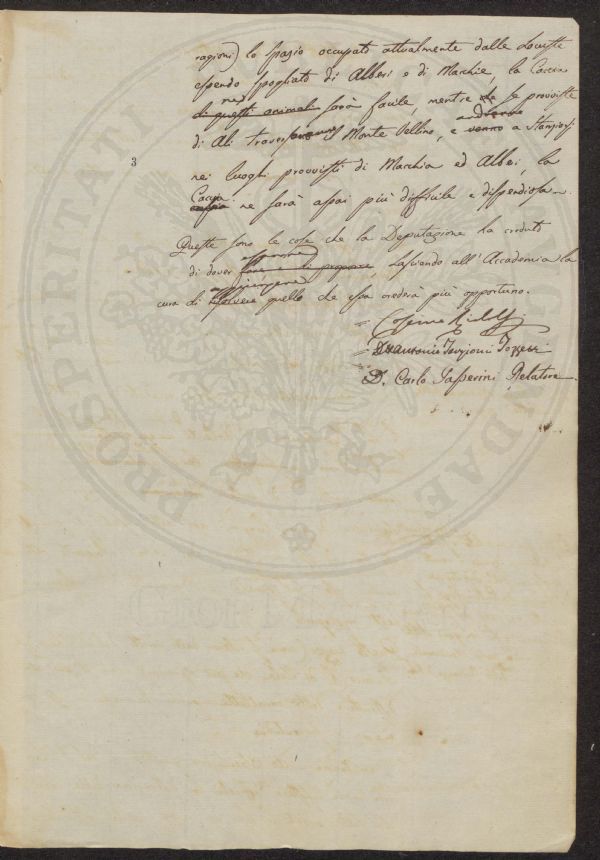 ragioni) lo spazio occupato attualmente dalle Locuste
essendo spogliato di Alberi e di Macchie, la Caccia
ne
di questi animali sarà facile, mentre che se provviste
anderanno
di Ali traverseranno il Monte Pellino, e venno a stanziarsi
3
nei luoghi provvisti di Macchia ed Alberi, la
Caccia
ne sarà assai più difficile e dispendiosa.
Queste sono le cose che la Deputazione ha creduto
esporre
di dover fare di proporre, lasciando all'Accademia la
cura di risolvere quello che essa crederà più opportuno.
D Antonio Targioni Tozzetti
D. Carlo Passerini Relatore
PROSPERITATI AUGENDAE